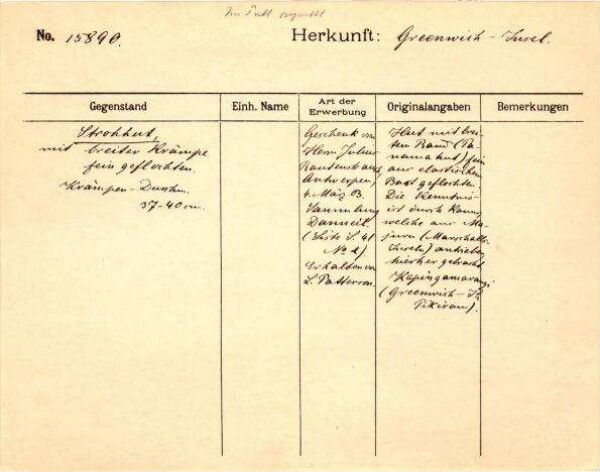 Im Pult
No. 15890.
Herkunft: Greenwich-Insel.
Gegenstand
Einh. Name
Art der
Erwerbung
Originalangaben
Bemerkungen
Strohhut,
mit breiter Krämpe
fein geflochten.
Krämpen-Durchm.
37-40 cm.
Geschenk von
Herrn Julius
Rautenstrauch
Antwerpen,
4. März 13.
Sammlung
Danneil.
(Liste S. 41
No 2)
Erhalten von
L. Patterson.
Hut mit brei-
ten Rand (Pa-
namahut) fein
aus elastischem
Bast geflochten.
Die Kenntnis
ist durch Kanus,
welche aus Ma-
juru (Marschall-
Inseln) antrieben
hierher gebracht.
Kapingamarangi
(Greenwich-I.
Pikiram).